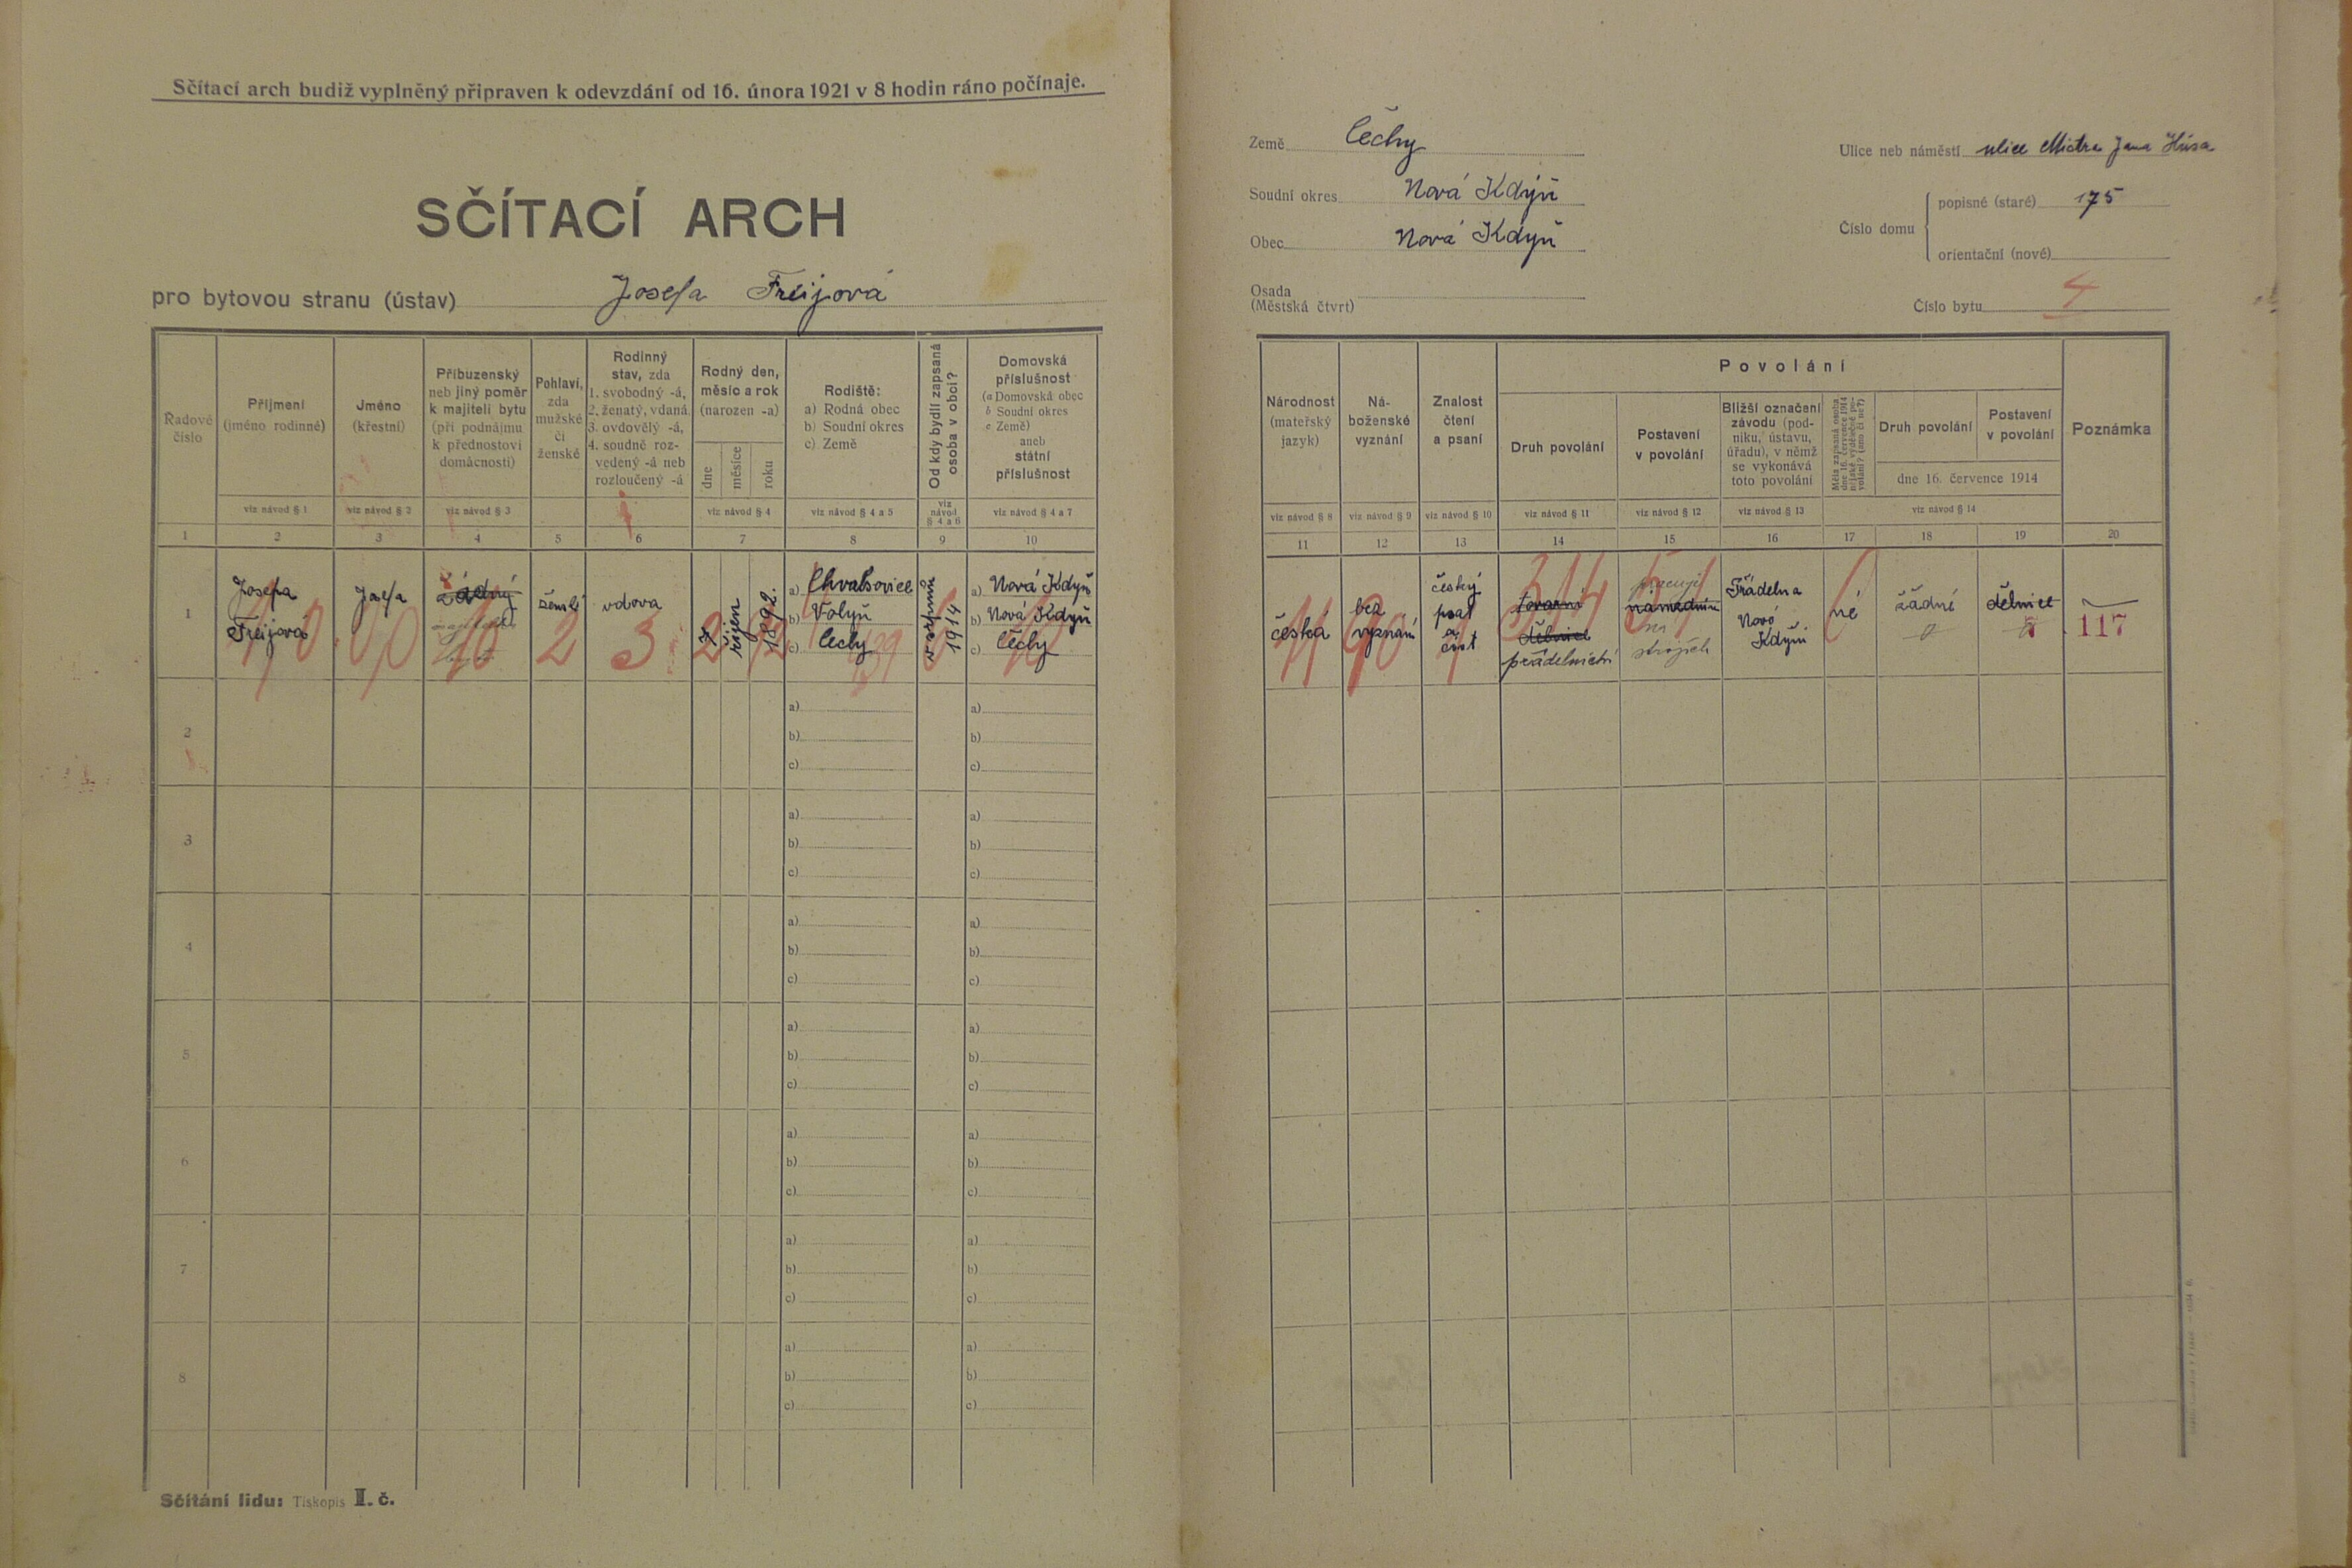 Sčítací arch budiž vyplněný připraven k odevzdání od 16. února 1921 v 8 hodin ráno počínaje.
SČÍTACÍ ARCH
pro bytovou stranu (ústav) Josefa Freijová
Řadové číslo
Příjmení
(jméno rodinné)
Jméno
(křestní)
Příbuzenský
neb jiný poměr
k majiteli bytu
(při podnájmu
k přednostovi
domácnosti)
Pohlaví,
zda
mužské
či
ženské
Rodinný
stav, zda
1. svobodný -á,
2. ženatý, vdaná
3. ovdovělý -á,
4. soudně roz-
vedený -á neb
rozloučený -á
Rodný den,
měsíc a rok
(narozen -a)
dne
měsíce
roku
Rodiště:
a) Rodná obec
b) Soudní okres
c) Země
Od kdy bydlí zapsaná
osoba v obci?
Domovská
příslušnost
(a Domovská obec
b Soudní okres
c Země)
aneb
státní
příslušnost
viz návod § 1
viz návod § 2
viz návod § 3
viz návod § 4
viz návod § 4 a 5
viz
návod
§ 4 a 6
viz návod § 4 a 7
1 2 3 4 5 6 7 8 9 10
1
Josefa
Freijová
Josefa
ženské
2
vdova
3
říjen
1892.
a) Chvalšovice
b) Volyň
c) Čechy
v srpnu
1914
a) Nová Kdyň
b) Nová Kdyň
c) Čechy
2
a)
b)
c)
a)
b)
c)
3
a)
b)
c)
a)
b)
c)
4
a)
b)
c)
a)
b)
c)
5
a)
b)
c)
a)
b)
c)
6
a)
b)
c)
a)
b)
c)
7
a)
b)
c)
a)
b)
c)
8
a)
b)
c)
a)
b)
c)
Sčítání lidu: Tiskopis I. č.
Země Čechy
Soudní okres Nová Kdyň
Obec Nová Kdyň
Osada
(Městská čtvrt)
Ulice neb náměstí ulice Mistra Jana Húsa
Číslo domu
popisné (staré) 175
orientační (nové)
Číslo bytu 4
Národnost
(mateřský
jazyk)
Ná-
boženské
vyznání
Znalost
čtení
a psaní
Povolání
Druh povolání
Postavení
v povolání
Bližší označení
závodu (pod-
niku, ústavu,
úřadu), v němž
se vykonává
toto povolání
Měla zapsaná osoba
dne 16. července 1914
nějaké výdělečné po-
volání? (ano či ne?)
Druh povolání
Postavení
v povolání
dne 16. července 1914
Poznámka
viz návod § 8
viz návod § 9
viz návod § 10
viz návod § 11
viz návod § 12
viz návod § 13
viz návod § 14
11 12 13 14 15 16 17 18 19 20
česká
bez
vyznání
český
psat
a
čist
314
tovarní
dělnice
přádelnictví
pracující
na
strojích
Přádelna
Nová
Kdyňi
né
žádné
dělnice
117